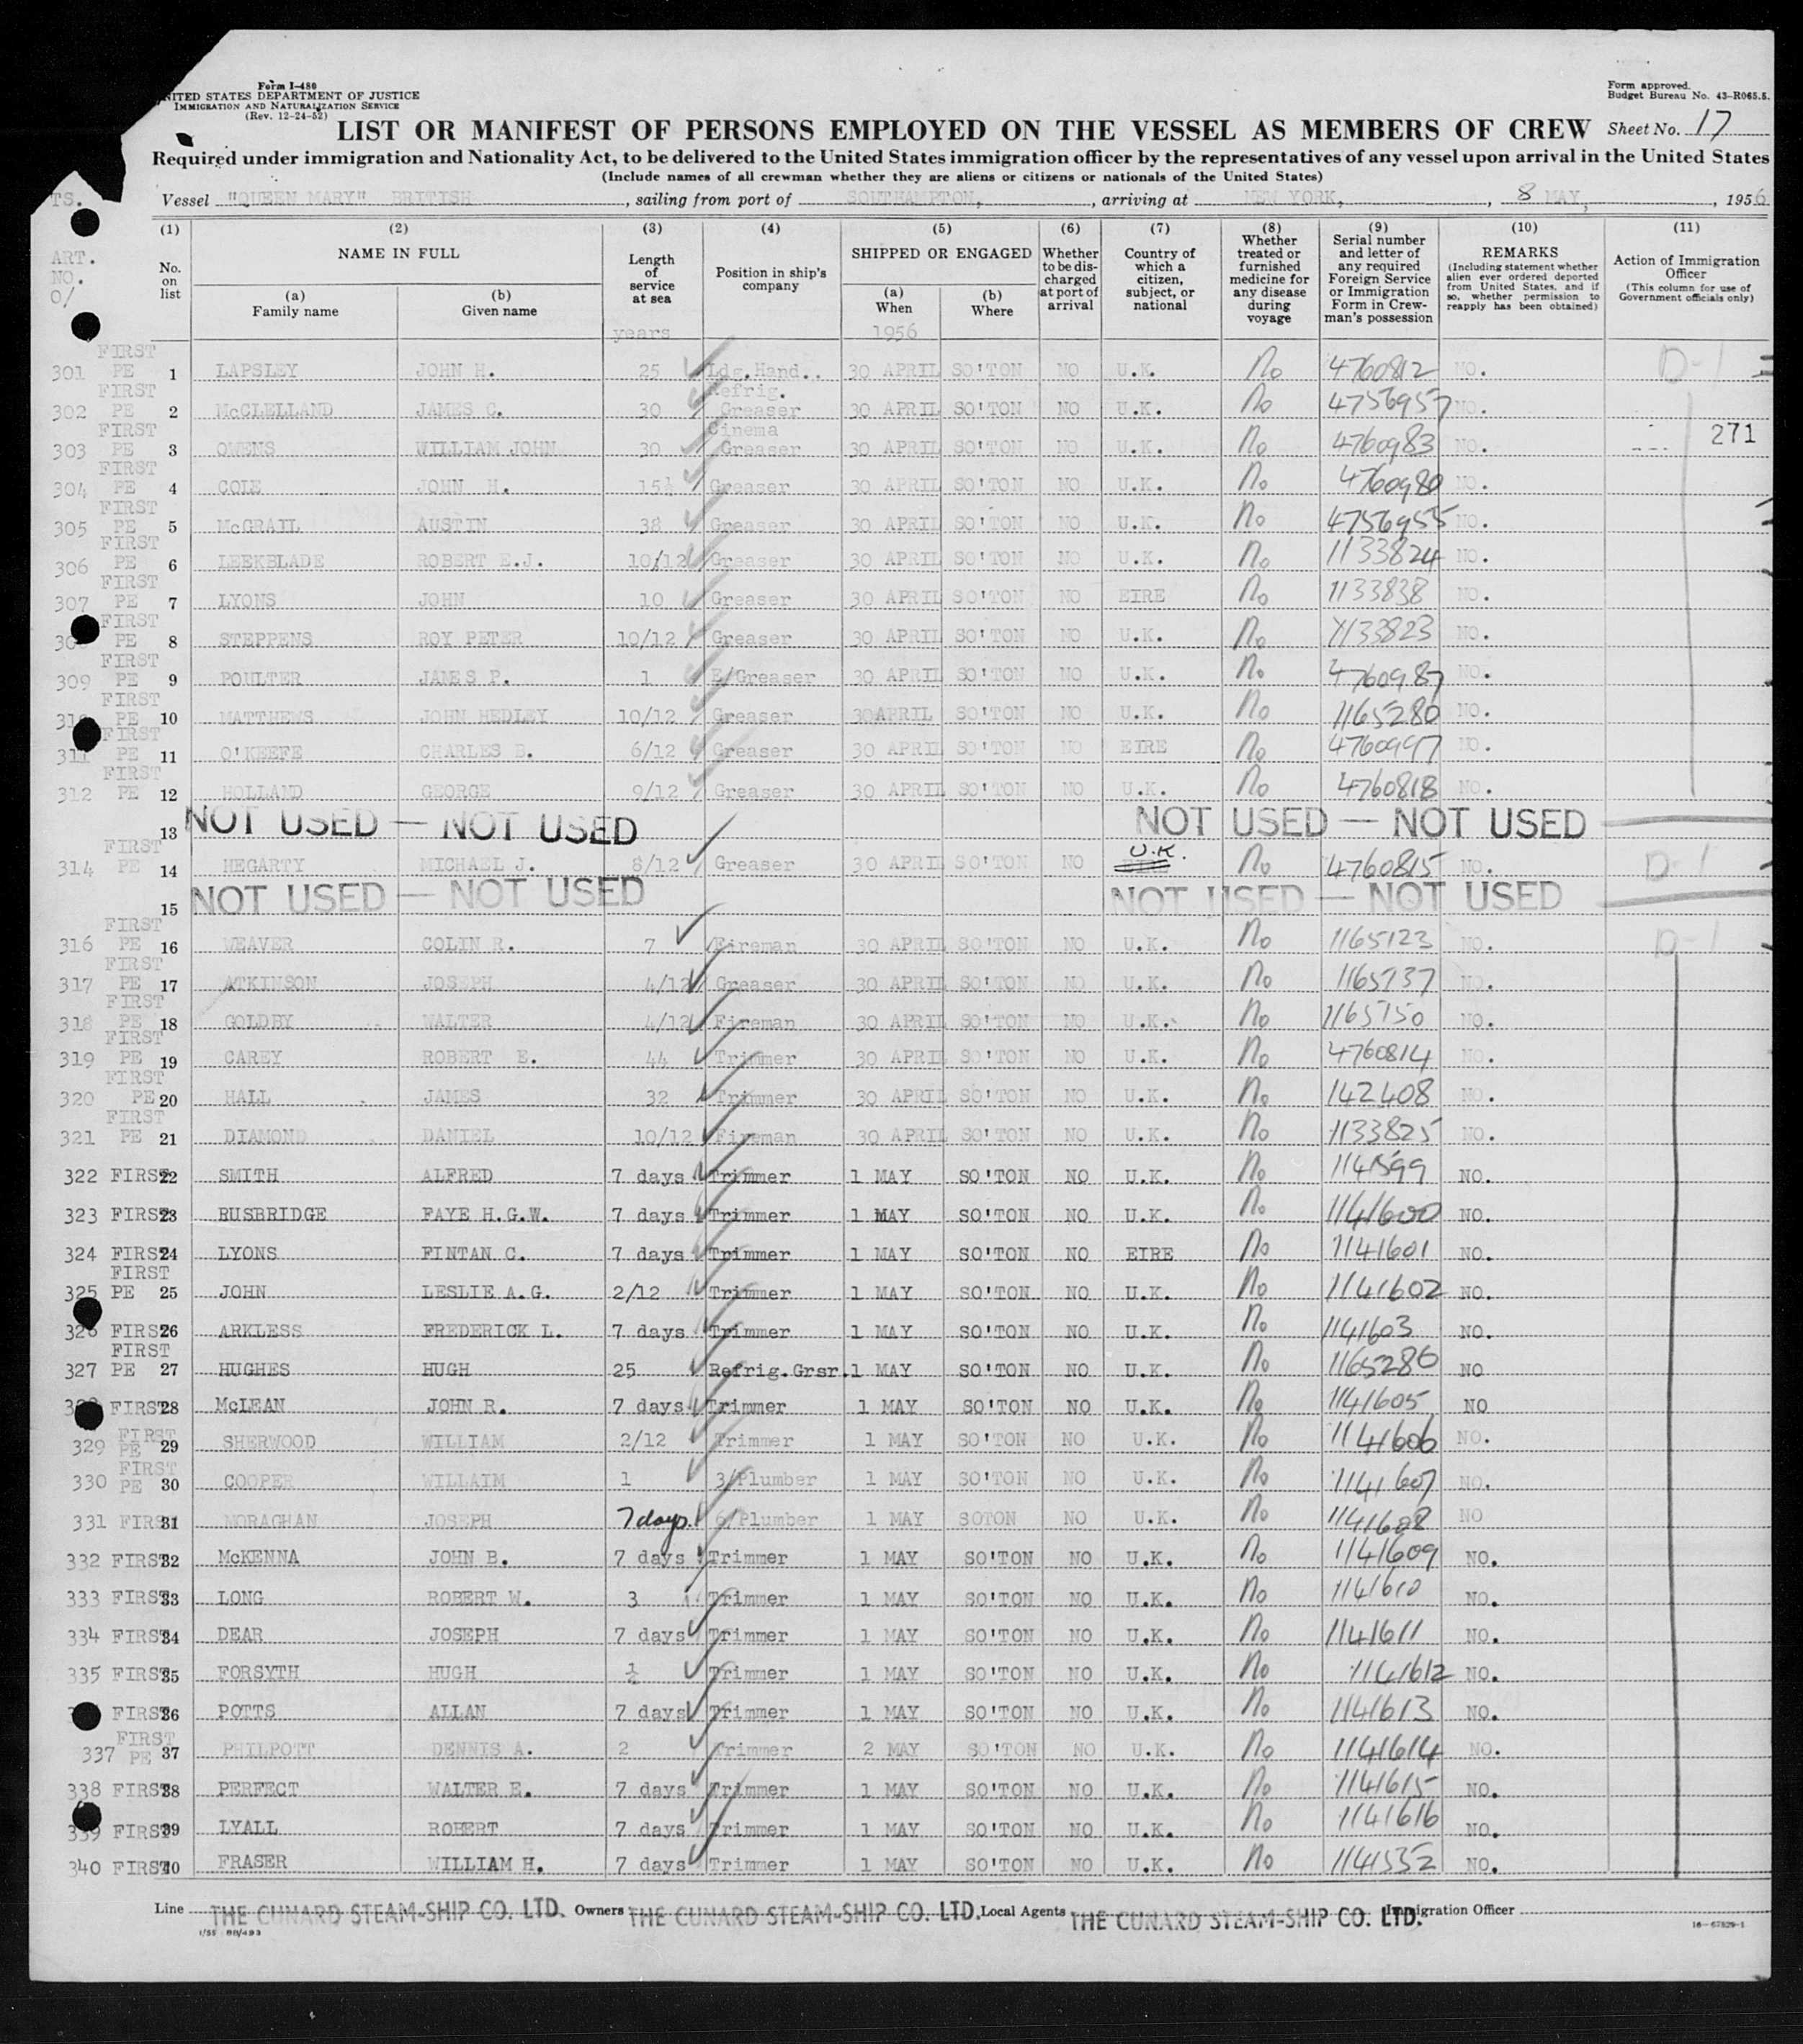 Form I-480
UNITED STATES DEPARTMENT OF JUSTICE
IMMIGRATION AND NATURALIZATION SERVICE
(Rev. 12-24-52)
Form approved.
Budget Bureau No. 43-R065.5.
LIST OR MANIFEST OF PERSONS EMPLOYED ON THE VESSEL AS MEMBERS OF CREW Sheet No. 17
Required under immigration and Nationality Act, to be delivered to the United States immigration officer by the representatives of any vessel upon arrival in the United States
(Include names of all crewman whether they are aliens or citizens or nationals of the United States)
Vessel "QUEEN MARY" BRITISH, sailing from port of SOUTHAMPTON, arriving at NEW YORK, 8 MAY, 1956
TS.
ART. NO. O/
(1) No. on list
(2) NAME IN FULL (a) Family name (b) Given name
(3) Length of service at sea
(4) Position in ship's company
(5) SHIPPED OR ENGAGED (a) When (b) Where
(6) Whether to be discharged at port of arrival
(7) Country of which a citizen, subject, or national
(8) Whether treated or furnished medicine for any disease during voyage
(9) Serial number and letter of any required Foreign Service or Immigration Form in Crewman's possession
(10) REMARKS (Including statement whether alien ever ordered deported from United States, and if so, whether permission to reapply has been obtained)
(11) Action of Immigration Officer (This column for use of Government officials only)
years 1956
301 FIRST PE 1 LAPSLEY JOHN H. 25 Ldg.Hand.. 30 APRIL SO'TON NO U.K. No 4760812 NO. D-1
302 FIRST PE 2 McCLELLAND JAMES C. 30 Refrig. Greaser 30 APRIL SO'TON NO U.K. No 4756957 NO.
303 FIRST PE 3 OWENS WILLIAM JOHN 30 Cinema Greaser 30 APRIL SO'TON NO U.K. No 4760983 NO. 271
304 FIRST PE 4 COLE JOHN H. 15½ Greaser 30 APRIL SO'TON NO U.K. No 4760980 NO.
305 FIRST PE 5 McGRAIL AUSTIN 38 Greaser 30 APRIL SO'TON NO U.K. No 4756955 NO.
306 FIRST PE 6 LEEKBLADE ROBERT E.J. 10/12 Greaser 30 APRIL SO'TON NO U.K. No 1133824 NO.
307 FIRST PE 7 LYONS JOHN 10 Greaser 30 APRIL SO'TON NO EIRE No 1133838 NO.
FIRST PE 8 STEPPENS ROY PETER 10/12 Greaser 30 APRIL SO'TON NO U.K. No 1133823 NO.
309 FIRST PE 9 POULTER JAMES P. 1 E/Greaser 30 APRIL SO'TON NO U.K. No 4760987 NO.
FIRST PE 10 MATTHEWS JOHN HEDLEY 10/12 Greaser 30APRIL SO'TON NO U.K. No 1165280 NO.
311 FIRST PE 11 O'KEEFE CHARLES B. 6/12 Greaser 30 APRIL SO'TON NO EIRE No 4760997 NO.
312 FIRST PE 12 HOLLAND GEORGE 9/12 Greaser 30 APRIL SO'TON NO U.K. No 4760818 NO.
13 NOT USED — NOT USED NOT USED — NOT USED
314 FIRST PE 14 HEGARTY MICHAEL J. 8/12 Greaser 30 APRIL SO'TON NO U.K. No 4760815 NO. D-1
15 NOT USED — NOT USED NOT USED — NOT USED
316 FIRST PE 16 WEAVER COLIN R. 7 Fireman 30 APRIL SO'TON NO U.K. No 1165123 NO. D-1
317 FIRST PE 17 ATKINSON JOSEPH 4/12 Greaser 30 APRIL SO'TON NO U.K. No 1165137 NO.
318 FIRST PE 18 GOLDBY WALTER 4/12 Fireman 30 APRIL SO'TON NO U.K. No 1165150 NO.
319 FIRST PE 19 CAREY ROBERT E. 44 Trimmer 30 APRIL SO'TON NO U.K. No 4760814 NO.
320 FIRST PE 20 HALL JAMES 32 Trimmer 30 APRIL SO'TON NO U.K. No 142408 NO.
321 FIRST PE 21 DIAMOND DANIEL 10/12 Fireman 30 APRIL SO'TON NO U.K. No 1133825 NO.
322 FIRST 22 SMITH ALFRED 7 days Trimmer 1 MAY SO'TON NO U.K. No 1141599 NO.
323 FIRST 23 RUSBRIDGE FAYE H.G.W. 7 days Trimmer 1 MAY SO'TON NO U.K. No 1141600 NO.
324 FIRST 24 LYONS FINTAN C. 7 days Trimmer 1 MAY SO'TON NO EIRE No 1141601 NO.
325 FIRST PE 25 JOHN LESLIE A.G. 2/12 Trimmer 1 MAY SO'TON NO U.K. No 1141602 NO.
326 FIRST 26 ARKLESS FREDERICK L. 7 days Trimmer 1 MAY SO'TON NO U.K. No 1141603 NO.
327 FIRST PE 27 HUGHES HUGH 25 Refrig.Grsr. 1 MAY SO'TON NO U.K. No 1165286 NO
FIRST 28 McLEAN JOHN R. 7 days Trimmer 1 MAY SO'TON NO U.K. No 1141605 NO
329 FIRST PE 29 SHERWOOD WILLIAM 2/12 Trimmer 1 MAY SO'TON NO U.K. No 1141606 NO.
330 FIRST PE 30 COOPER WILLAIM 1 3/Plumber 1 MAY SO'TON NO U.K. No 1141607 NO.
331 FIRST 31 MORAGHAN JOSEPH 7 days. 6/Plumber 1 MAY SOTON NO U.K. No 1141608 NO
332 FIRST 32 McKENNA JOHN B. 7 days Trimmer 1 MAY SO'TON NO U.K. No 1141609 NO.
333 FIRST 33 LONG ROBERT W. 3 Trimmer 1 MAY SO'TON NO U.K. No 1141610 NO.
334 FIRST 34 DEAR JOSEPH 7 days Trimmer 1 MAY SO'TON NO U.K. No 1141611 NO.
335 FIRST 35 FORSYTH HUGH ½ Trimmer 1 MAY SO'TON NO U.K. No 1141612 NO.
FIRST 36 POTTS ALLAN 7 days Trimmer 1 MAY SO'TON NO U.K. No 1141613 NO.
337 FIRST PE 37 PHILPOTT DENNIS A. 2 Trimmer 2 MAY SO'TON NO U.K. No 1141614 NO.
338 FIRST 38 PERFECT WALTER E. 7 days Trimmer 1 MAY SO'TON NO U.K. No 1141615 NO.
339 FIRST 39 LYALL ROBERT 7 days Trimmer 1 MAY SO'TON NO U.K. No 1141616 NO.
340 FIRST 40 FRASER WILLIAM H. 7 days Trimmer 1 MAY SO'TON NO U.K. No 1141552 NO.
Line THE CUNARD STEAM-SHIP CO. LTD. Owners THE CUNARD STEAM-SHIP CO. LTD. Local Agents THE CUNARD STEAM-SHIP CO. LTD. Immigration Officer
16-67829-1